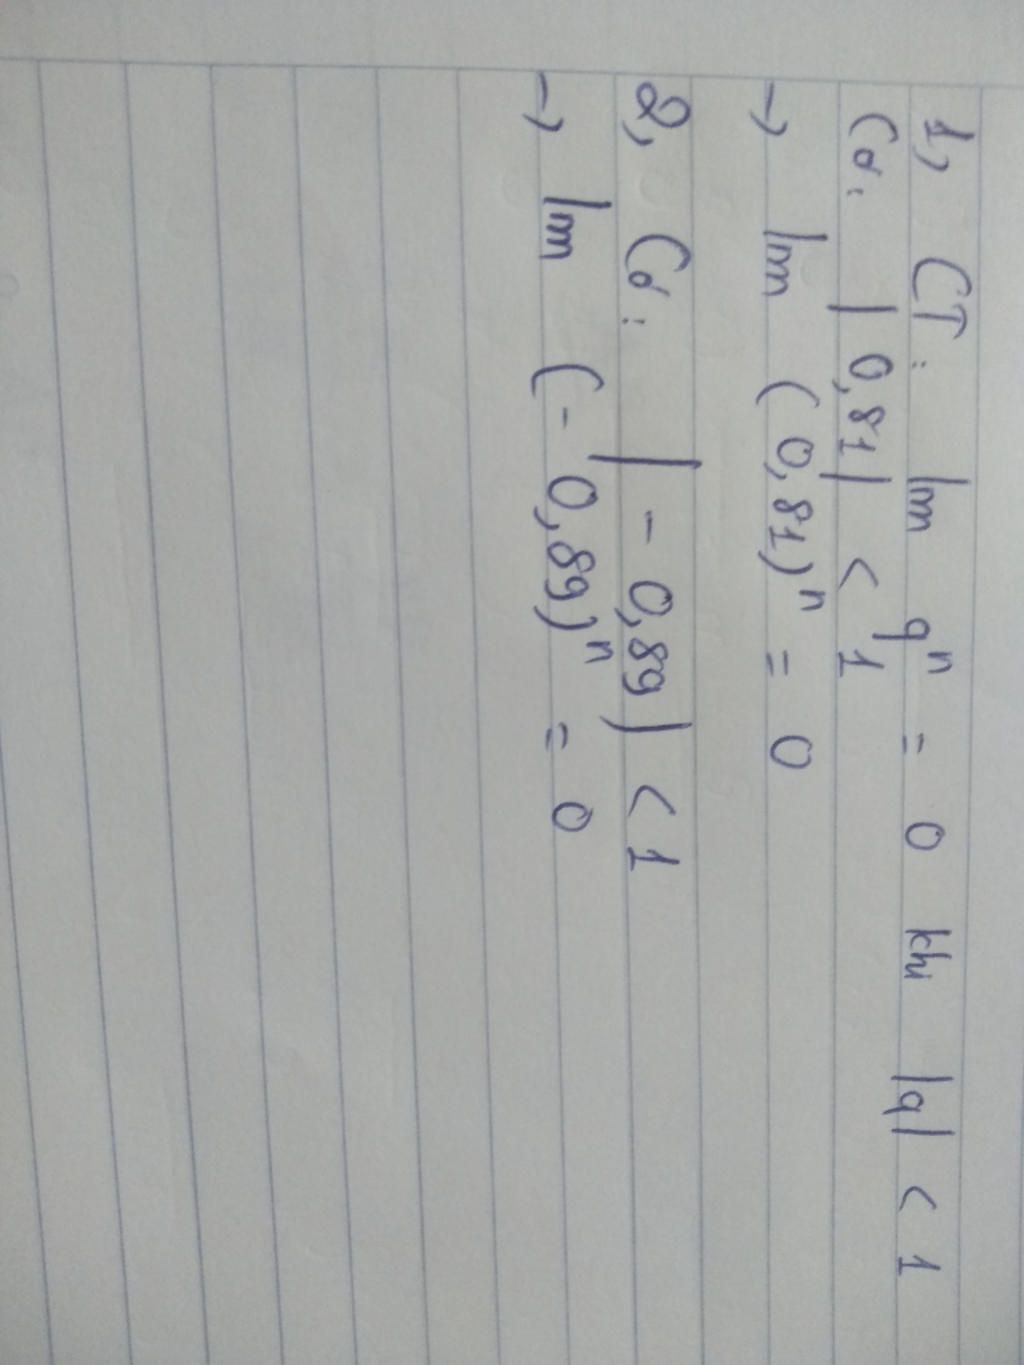 1, CT: lim qⁿ = 0 khi |q| < 1
Có: |0,81| < 1
→ lim (0,81)ⁿ = 0
2, Có: |-0,89| < 1
→ lim (-0,89)ⁿ = 0